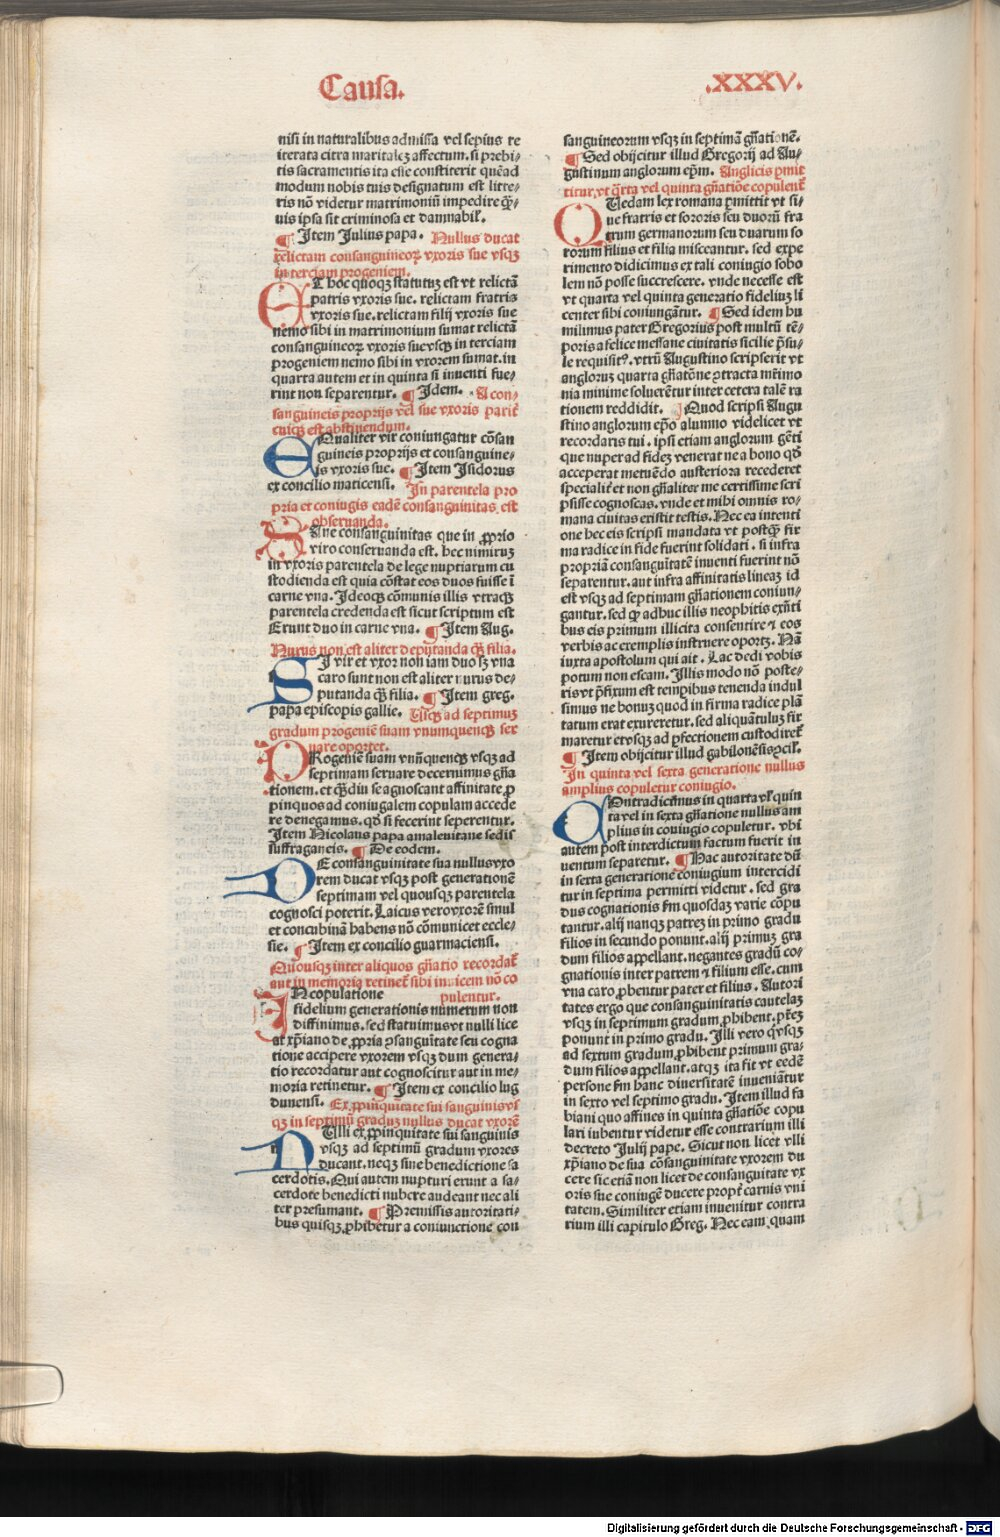 Causa.
.XXXV.
nisi in naturalibus admissa vel sepius re
iterata citra maritalez affectum. si prebi-
tis sacramentis ita esse constiterit quēad
modum nobis tuis designatum est litte-
ris nō videtur matrimoniū impedire q̄-
uis ipsa sit criminosa et damnabil'.
¶ Item Julius papa. Nullus ducat
relictam consanguineoꝝ vxoris sue vsqꝫ
in terciam progeniem.
ET hoc quoqꝫ statutuꝫ est vt relictā
patris vxoris sue. relictam fratris
vxoris sue. relictam filij vxoris sue
nemo sibi in matrimonium sumat relictā
consanguineoꝝ vxoris sue vsqꝫ in terciam
progeniem nemo sibi in vxorem sumat. in
quarta autem et in quinta si inuenti fue-
rint non separentur. ¶ Idem. A con-
sanguineis proprijs vel sue vxoris parit̄
cuiqꝫ est abstinendum.
EQualiter vir coniungatur cōsan
guineis proprijs et consanguine-
is vxoris sue. ¶ Item Isidorus
ex concilio maticensi. In parentela pro
pria et coniugis eadē consanguinitas est
obseruanda.
SAne consanguinitas que in ꝓprio
viro conseruanda est. hec nimiruꝫ
in vxoris parentela de lege nuptiarum cu
stodienda est quia cōstat eos duos fuisse ī
carne vna. Ideoqꝫ cōmunis illis vtraqꝫ
parentela credenda est sicut scriptum est
Erunt duo in carne vna. ¶ Item Aug.
Nurus non est aliter deputanda q̄ filia.
SI vir et vxor non iam duo sꝫ vna
caro sunt non est aliter nurus de-
putanda q̄ filia. ¶ Item greg.
papa episcopis gallie. Usqꝫ ad septimuꝫ
gradum progeniē suam vnumquenqꝫ ser
uare oportet.
PRogeniē suam vnūquenqꝫ vsqꝫ ad
septimam seruare decernimus gn̄a
tionem. et q̄diu se agnoscant affinitate ꝓ
pinquos ad coniugalem copulam accede
re denegamus. qđ si fecerint seperentur.
Item Nicolaus papa amaleuitane sedis
suffraganeis. ¶ De eodem.
DE consanguinitate sua nullus vxo
rem ducat vsqꝫ post generationē
septimam vel quousqꝫ parentela
cognosci poterit. Laicus vero vxorē simul
et concubinā habens nō cōmunicet eccle-
sie. ¶ Item ex concilio guarmaciensi.
Quousqꝫ inter aliquos gn̄atio recordat̄
aut in memoria retinet̄ sibi inuicem nō co
pulentur.
IN copulatione
fidelium generationis numerum non
diffinimus. sed statuimus vt nulli lice
at xp̄iano de ꝓpria ꝯsanguītate seu cogna
tione accipere vxorem vsqꝫ dum genera-
tio recordatur aut cognoscitur aut in me-
moria retinetur. ¶ Item ex concilio lug
dunensi. Ex ꝓpinq̄uitate sui sanguinis vs
qꝫ in septimū graduꝫ nullus ducat vxorē
NUlli ex ꝓpinquitate sui sanguinis
vsqꝫ ad septimū gradum vxores
ducant. neqꝫ sine benedictione sa
cerdotis. Qui autem nupturi erunt a sa-
cerdote benedicti nubere audeant nec ali
ter presumant. ¶ Premissis autoritati-
bus quisqꝫ ꝓhibetur a coniunctione con
sanguineorum vsqꝫ in septimā gn̄ationē.
¶ Sed obijcitur illud Gregorij ad Au-
gustinum anglorum ep̄m. Anglicis ꝑmit
titur, vt q̄rta vel quinta gn̄atiōe copulent̄
QUedam lex romana ꝑmittit vt si-
ue fratris et sororis seu duorū fra
trum germanorum seu duarum so
rorum filius et filia misceantur. sed expe
rimento didicimus ex tali coniugio sobo
lem nō posse succrescere. vnde necesse est
vt quarta vel quinta generatio fideliuꝫ li
center sibi coniungātur. ¶ Sed idem hu
milimus pater Gregorius post multū tē-
poris a felice messane ciuitatis sicilie p̄su-
le requisit⁹. vtrū Augustino scripserit vt
angloruꝫ quarta gn̄atōne ꝯtracta mr̄imo
nia minime soluerētur inter cetera talē ra
tionem reddidit. ¶ Quod scripsi Augu
stino anglorum ep̄o alumno videlicet vt
recordaris tui. ipsi etiam anglorum gēti
que nuper ad fidez venerat ne a bono qđ
acceperat metuēdo austeriora recederet
specialit̄ et non gn̄aliter me certissime scri
psisse cognoscas. vnde et mihi omnis ro-
mana ciuitas existit testis. Nec ea intenti
one hec eis scripsi mandata vt postq̄ fir
ma radice in fide fuerint solidati. si infra
propriā consanguītatē inuenti fuerint nō
separentur. aut infra affinitatis lineaꝫ id
est vsqꝫ ad septimam gn̄ationem coniun-
gantur. sed ꝙ adhuc illis neophitis exn̄ti
bus eis primum illicita consentire ⁊ eos
verbis ac exemplis instruere oportꝫ. Nā
iuxta apostolum qui ait. Lac dedi vobis
potum non escam. Illis modo nō poste-
ris vt p̄fixum est temꝑibus tenenda indul
simus ne bonuꝫ quod in firma radice plā
tatum erat exureretur. sed aliquātuluꝫ fir
maretur et vsqꝫ ad ꝑfectionem custodiret̄
¶ Item obijcitur illud gabilonēsis ꝯcil'.
In quinta vel sexta generatione nullus
amplius copuletur coniugio.
COntradicimus in quarta vl' quin
ta vel in sexta gn̄atione nullus am
plius in coniugio copuletur. vbi
autem post interdictum factum fuerit in
uentum separetur. ¶ Hac autoritate dū
in sexta generatione coniugium intercidi
tur in septima permitti videtur. sed gra
dus cognationis fm quosdaꝫ varie cōpu
tantur. alij nanqꝫ patreꝫ in primo gradu
filios in secundo ponunt. alij primuꝫ gra
dum filios appellant. negantes gradū co-
gnationis inter patrem ⁊ filium esse. cum
vna caro ꝓhentur pater et filius. Autori
tates ergo que consanguinitatis cautelaꝫ
vsqꝫ in septimum gradum ꝓhibent. pr̄eꝫ
ponunt in primo gradu. Illi vero q̄ vsqꝫ
ad sextum gradum ꝓhibent primum gra-
dum filios appellant. atqꝫ ita fit vt eedē
persone fm hanc diuersitatē inueniātur
in sexto vel septimo gradu. Item illud fa
biani quo affines in quinta gn̄atiōe copu
lari iubentur videtur esse contrarium illi
decreto Julij pape. Sicut non licet vlli
xp̄iano de sua cōsanguinitate vxorem du
cere sic etiā non licet de consanguitate vx
oris sue coniugē ducere propt̄ carnis vni
tatem. Similiter etiam inuenitur contra
rium illi capitulo Greg. Nec eam quam
Digitalisierung gefördert durch die Deutsche Forschungsgemeinschaft - DFG